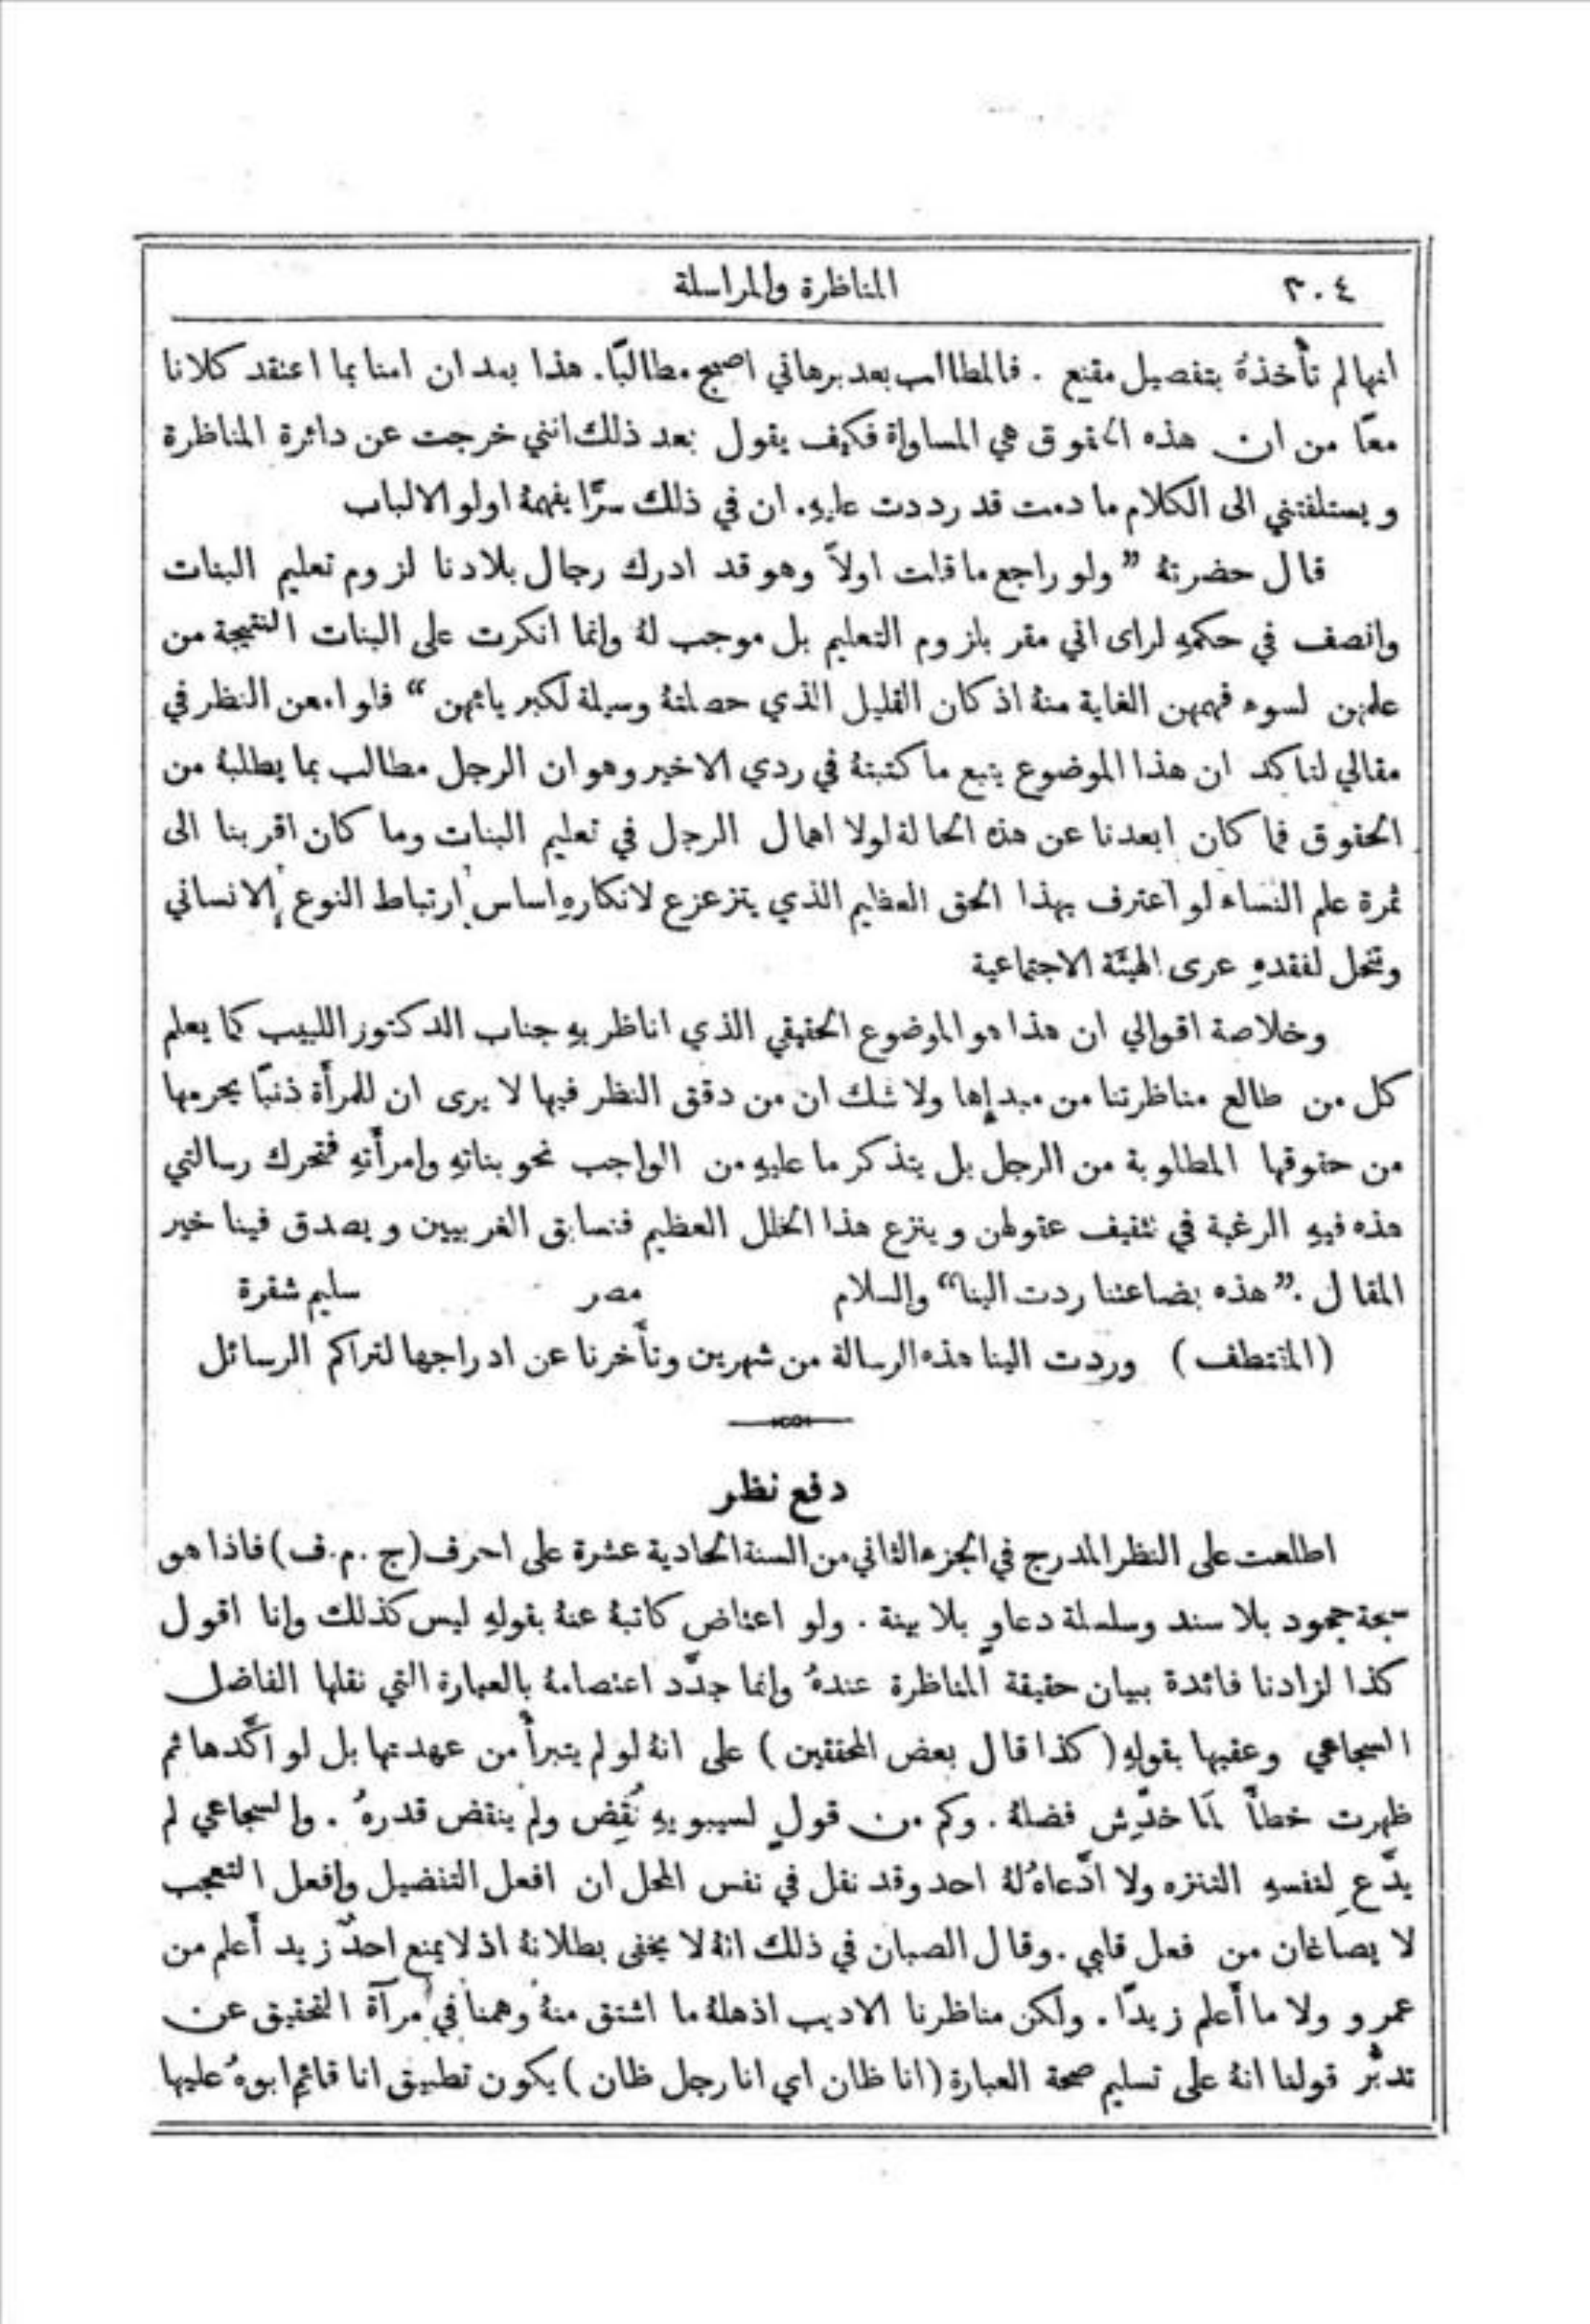 ٣٠٤
المناظرة والمراسلة
انها لم تأخذهُ بتفصيل مقنع . فالمطالب بعد برهاني اصبح مطالبًا. هذا بعد ان امنا بما اعتقد كلانا
معًا من ان هذه الحقوق هي المساواة فكيف يقول بعد ذلك انني خرجت عن دائرة المناظرة
ويستلفتني الى الكلام ما دمت قد رددت عليهِ. ان في ذلك سرًّا يفهمهُ اولو الالباب
قال حضرتهُ ”ولو راجع ما قلت اولاً وهو قد ادرك رجال بلادنا لزوم تعليم البنات
وانصف في حكمهِ لراى اني مقر بلزوم التعليم بل موجب لهُ وانما انكرت على البنات النتيجة من
علمهن لسوء فهمهن الغاية منهُ اذ كان القليل الذي حصلنهُ وسيلة لكبريائهن“ فلو امعن النظر في
مقالي لتاكد ان هذا الموضوع يتبع ما كتبتهُ في ردي الاخير وهو ان الرجل مطالب بما يطلبهُ من
الحقوق فما كان ابعدنا عن هذه الحالة لولا اهمال الرجل في تعليم البنات وما كان اقربنا الى
ثمرة علم النساء لو اعترف بهذا الحق العظيم الذي يتزعزع لانكارهِ اساس ارتباط النوع الانساني
وتنحل لفقدهِ عرى الهيئة الاجتماعية
وخلاصة اقوالي ان هذا هو الموضوع الحقيقي الذي اناظر بهِ جناب الدكتور اللبيب كما يعلم
كل من طالع مناظرتنا من مبدإها ولا شك ان من دقق النظر فيها لا يرى ان للمرأة ذنبًا يحرمها
من حقوقها المطلوبة من الرجل بل يتذكر ما عليهِ من الواجب نحو بناتهِ وامرأتهِ فتحرك رسالتي
هذه فيهِ الرغبة في تثقيف عقولهن وينزع هذا الخلل العظيم فنسابق الغربيين ويصدق فينا خير
المقال .”هذه بضاعتنا ردت الينا“ والسلام مصر سليم شقرة
(المقتطف) وردت الينا هذه الرسالة من شهرين وتأخرنا عن ادراجها لتراكم الرسائل
دفع نظر
اطلعت على النظر المدرج في الجزء الثاني من السنة الحادية عشرة على احرف (ج . م. ف) فاذا هو
سبحة جمود بلا سند وسلسلة دعاوٍ بلا بينة . ولو اعتاض كاتبهُ عنهُ بقولهِ ليس كذلك وانا اقول
كذا لزادنا فائدة ببيان حقيقة المناظرة عندهُ وانما جدَّد اعتصامهُ بالعبارة التي نقلها الفاضل
السجاعي وعقبها بقولهِ (كذا قال بعض المحققين) على انهُ لو لم يتبرأ من عهدتها بل لو اكَّدها ثم
ظهرت خطأً لَمَا خدَّش فضلهُ. وكم من قولٍ لسيبويهِ نُقِض ولم ينقض قدرهُ . والسجاعي لم
يدَّعِ لنفسهِ التنزه ولا ادَّعاهُ لهُ احد وقد نقل في نفس المحل ان افعل التفضيل وافعل التعجب
لا يصاغان من فعل قلبي . وقال الصبان في ذلك انهُ لا يخفى بطلانهُ اذ لا يمنع احدٌ زيد أعلم من
عمرو ولا ما أعلم زيدًا . ولكن مناظرنا الاديب اذهلهُ ما اشتق منهُ وهمنا في مرآة التحقيق عن
تدبُّر قولنا انهُ على تسليم صحة العبارة (انا ظان اي انا رجل ظان) يكون تطبيق انا قائم ابوهُ عليها